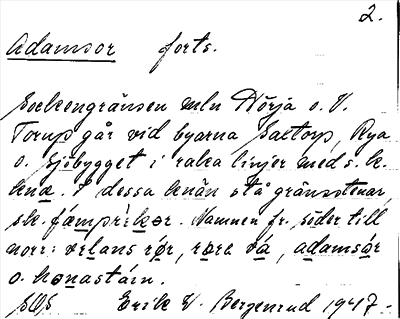 2.
Adamsor forts.
Sockengränsen mln Hörja o. V.
Torup går vid byarna Saxtorp, Rya
o. Sjöbygget i raka linjer med s. k.
knä. I dessa knän stå gränsstenar,
sk. fämprikor. Namnen fr. söder till
norr: verlans rør, røre vá, adamsør
o. konastáin.
SOS Erik V. Bergenrud 1947.